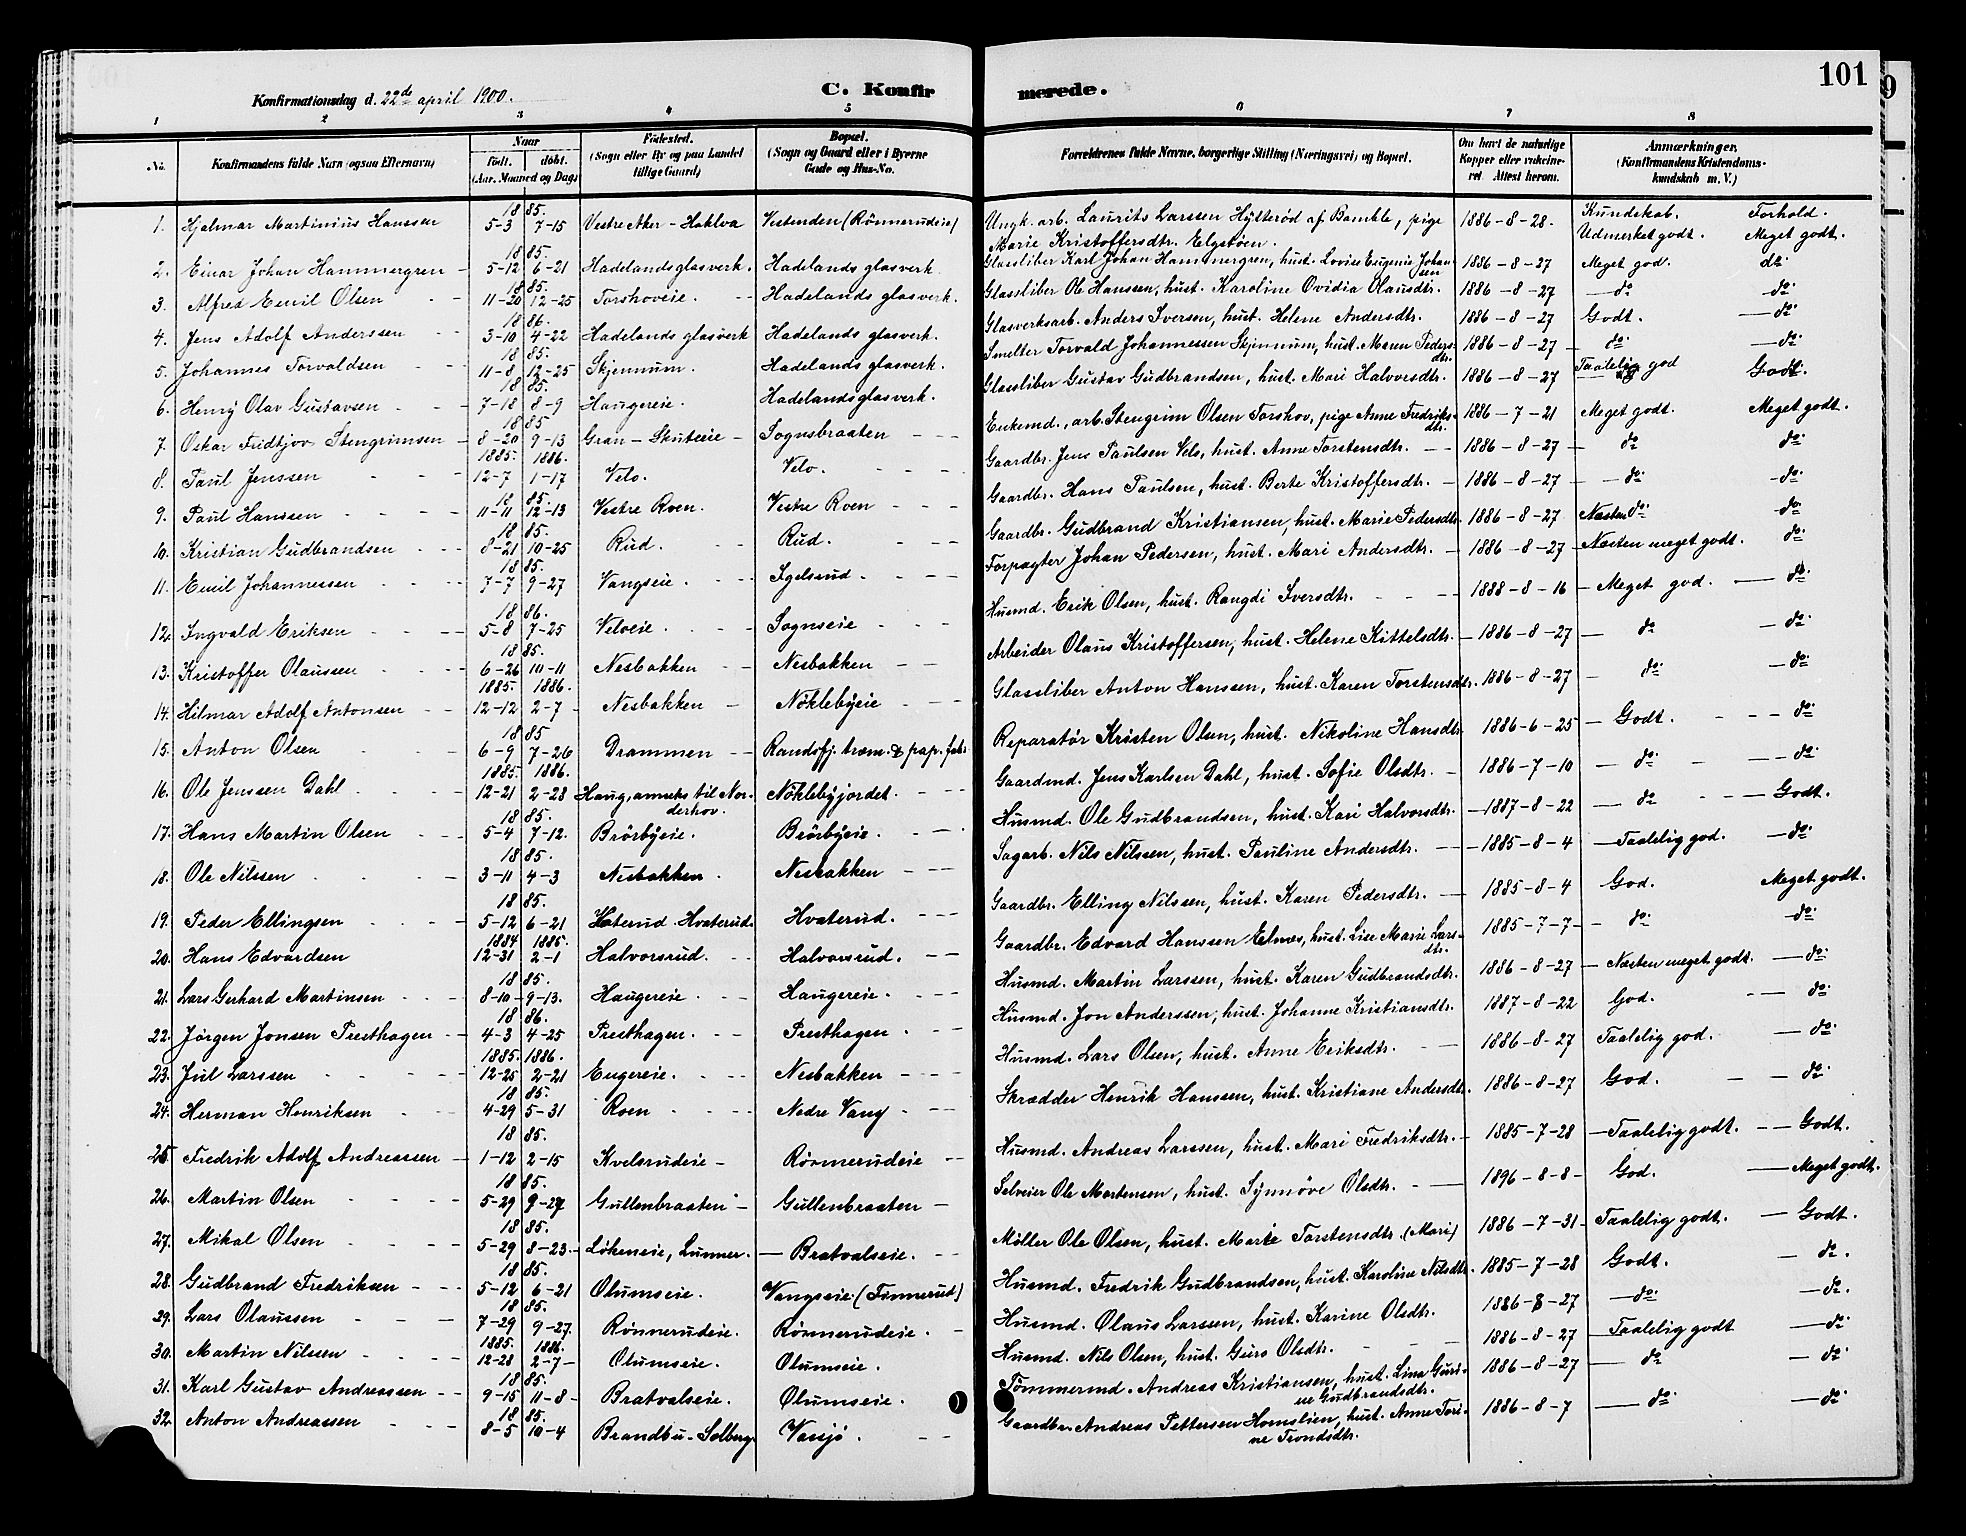 101
9
Konfirmationsdag d. 22de april 1900.
C. Konfir
merede.
1 2 3 4 5 6 7 8
No. Konfirmandens fulde Navn (ogsaa Efternavn) Naar født. døbt. (Aar. Maaned og Dag) Fødested. (Sogn eller By og paa Landet tillige Gaard) Bopæl. (Sogn og Gaard eller i Byerne Gade og Hus-No. Forældrenes fulde Navne, borgerlige Stilling (Næringsvei) og Bopæl. Om havt de naturlige Kopper eller vakcineret Attest herom. Anmærkninger, (Konfirmandens Kristendomskundskab m. V.)
Kundskab. Forhold.
1. Hjalmar Martinius Hanssen 1885. 5-3 7-15 Vestre Aker - Hoklva Vestenden (Rönnerudeie) Ungk. arb. Laurits Larssen Hysterød af Bamble, pige Marie Kristoffersdtr. Elgstøen. 1886-8-28. Udmerket godt. Meget godt.
2. Einar Johan Hammergren 1885. 5-12 6-21 Hadelandsglasverk. Hadelands glasverk. Glassliber Karl Johan Hammergren, hust. Lovise Eugenie Johansen 1886-8-27 Meget god. do
3. Alfred Emil Olsen 1885. 11-20 12-25 Torshoveie. Hadelands glasverk. Glassliber Ole Hanssen, hust. Karoline Ovidia Olausdtr. 1886-8-27 do do
4. Jens Adolf Anderssen 1886. 3-10 4-22 Hadelands glasverk Hadelands glasverk. Glasverksarb. Anders Iversen, hust. Helene Andersdtr. 1886-8-27 Godt. do
5. Johannes Torvaldsen 1885. 11-8 12-25 Skjennum. Hadelands glasverk. Smelter Torvald Johannessen Skjennum, hust. Maren Pedersdtr. 1886-8-27 do do
6. Henry Olav Gustavsen 1885. 7-18 8-9 Haugereie. Hadelandsglasverk. Glassliber Gustav Gudbrandsen, hust. Mari Halvorsdtr. 1886-8-27 Taalelig god Godt.
7. Oskar Fridtjov Stengrimsen 1885 8-20 9-13 Gran - Skuteeie Sognsbraaten Enkemd., arb. Stengrim Olsen Torshov, pige Anne Fredriksdtr. 1886-7-21 Meget godt. Meget godt.
8. Paul Jenssen 1885. 1886. 12-7 1-17 Velo. Velo. Gaardbr. Jens Paulsen Velo, hust. Anne Torstensdtr. 1886-8-27 do do
9. Paul Hanssen 1885. 11-11 12-13 Vestre Roen. Vestre Roen Gaardbr. Hans Paulsen, hust. Berte Kristoffersdtr. 1886-8-27 do do
10. Kristian Gudbrandsen 1885. 8-21 10-25 Rud. Rud. Gaardbr. Gudbrand Kristiansen, hust. Marie Pedersdtr. 1886-8-27 Næsten do do
11. Emil Johannessen 1885. 7-7 9-27 Vangseie. Igelsrud. Forpagter Johan Pedersen, hust. Mari Andersdtr. 1886-8-27 Næsten meget godt. do
12. Ingvald Eriksen 1886. 5-8 7-25 Veloeie. Sognseie Husmd. Erik Olsen, hust. Rangdi Iversdtr. 1888-8-16 Meget god. do
13. Kristoffer Olaussen 1885. 6-26 10-11 Nesbakken Nesbakken Arbeider Olaus Kristoffersen, hust. Helene Kittelsdtr. 1886-8-27 do do
14. Hilmar Adolf Antonsen 1885. 1886. 12-12 2-7 Nesbakken Nöklebyeie Glassliber Anton Hanssen, hust. Karen Torstensdtr. 1886-8-27 do do
15. Anton Olsen 1885 6-9 7-26 Drammen Randsfj. træm. & pap. fabr. Reparatør Kristen Olsen, hust. Nikoline Hansdtr. 1886-6-25 Godt. do
16. Ole Jenssen Dahl 1885. 1886. 12-21 2-28 Haug, anneks til Norderhov. Nöklebyjordet. Gaardmd. Jens Karlsen Dahl, hust. Sofie Olsdtr. 1886-7-10 do do
17. Hans Martin Olsen 1885. 5-4 7-12. Brörbyeie. Brörbyeie. Husmd. Ole Gudbrandsen, hust. Kari Halvorsdtr. 1887-8-22 do Godt.
18. Ole Nilssen 1885. 3-11 4-3 Nesbakken. Nesbakken Sagarb. Nils Nilssen, hust. Pauline Andersdtr. 1885-8-4 Taalelig god. do
19. Peder Ellingsen 1885. 5-12 6-21 Hvaterud. Hvaterud. Gaardbr. Elling Nilssen, hust. Karen Pedersdtr. 1885-8-4 God. Meget godt.
20. Hans Edvardsen 1884 1885. 12-31 2-1 Halvorsrud. Halvorsrud. Gaardbr. Edvard Hanssen Elnæs, hust. Lise Marie Larsdtr. 1885-7-7 do do
21. Lars Gerhard Martinsen 1885. 8-10 9-13. Haugereie. Haugereie. Husmd. Martin Larssen, hust. Karen Gudbrandsdtr. 1886-8-27 Næsten meget godt. do
22. Jörgen Jonsen Presthagen 1886. 4-3 4-25 Presthagen. Presthagen Husmd. Jon Anderssen, hust. Johanne Kristiansdtr. 1887-8-22 God. do
23. Jul Larssen 1885. 1886. 12-25 2-21 Engereie. Nesbakken Husmd. Lars Olsen, hust. Anne Eriksdtr. 1886-8-27 Taalelig god. do
24. Herman Henriksen 1885. 4-29 5-31 Roen Nedre Vang Skrædder Henrik Hanssen, hust. Kristiane Andersdtr. 1886-8-27 God. do
25 Fredrik Adolf Andreassen 1885. 1-12 2-15 Kvelsrudeie Rönnerudeie Husmd. Andreas Larssen, hust. Mari Fredriksdtr. 1885-7-28 Taalelig godt. Godt.
26. Martin Olsen 1885. 5-29 9-27 Gullenbraaten Gullenbraaten Selveier Ole Mortensen, hust. Synnöve Olsdtr. 1896-8-8 God. Meget godt.
27. Mikal Olsen 1885. 5-29 8-23. Lökeneie, Lunner. Bratvalseie. Möller Ole Olsen, hust. Marte Torstensdtr. (Mari) 1886-7-31 Taalelig godt. Godt.
28. Gudbrand Fredriksen 1885. 5-12 6-21 Olumseie. Vangseie (Finnerud) Husmd. Fredrik Gudbrandsen, hust. Karoline Nilsdtr. 1885-7-28 Godt. do.
29. Lars Olaussen 1885. 7-29 9-27. Rönnerudeie. Rönnerudeie. Husmd. Olaus Larssen, hust. Karine Olsdtr. 1886-8-27 do do.
30. Martin Nilssen 1885. 1886. 12-28 2-7 Olumseie. Olumseie. Husmd. Nils Olsen, hust. Guro Olsdtr. 1886-8-27 Taalelig godt do
31. Karl Gustav Andreassen 1885. 9-15 11-8 Bratvalseie. Olumseie. Tömmermd. Andreas Kristiansen, hust. Lina Gurine Gudbrandsdtr. 1886-8-27 do do
32. Anton Andreassen 1885. 8-5 10-4 Brandbu - Solberg Vassjö. Gaardbr. Andreas Pettersen Homslien, hust. Anne Torine Trondsdtr. 1886-8-7 do do